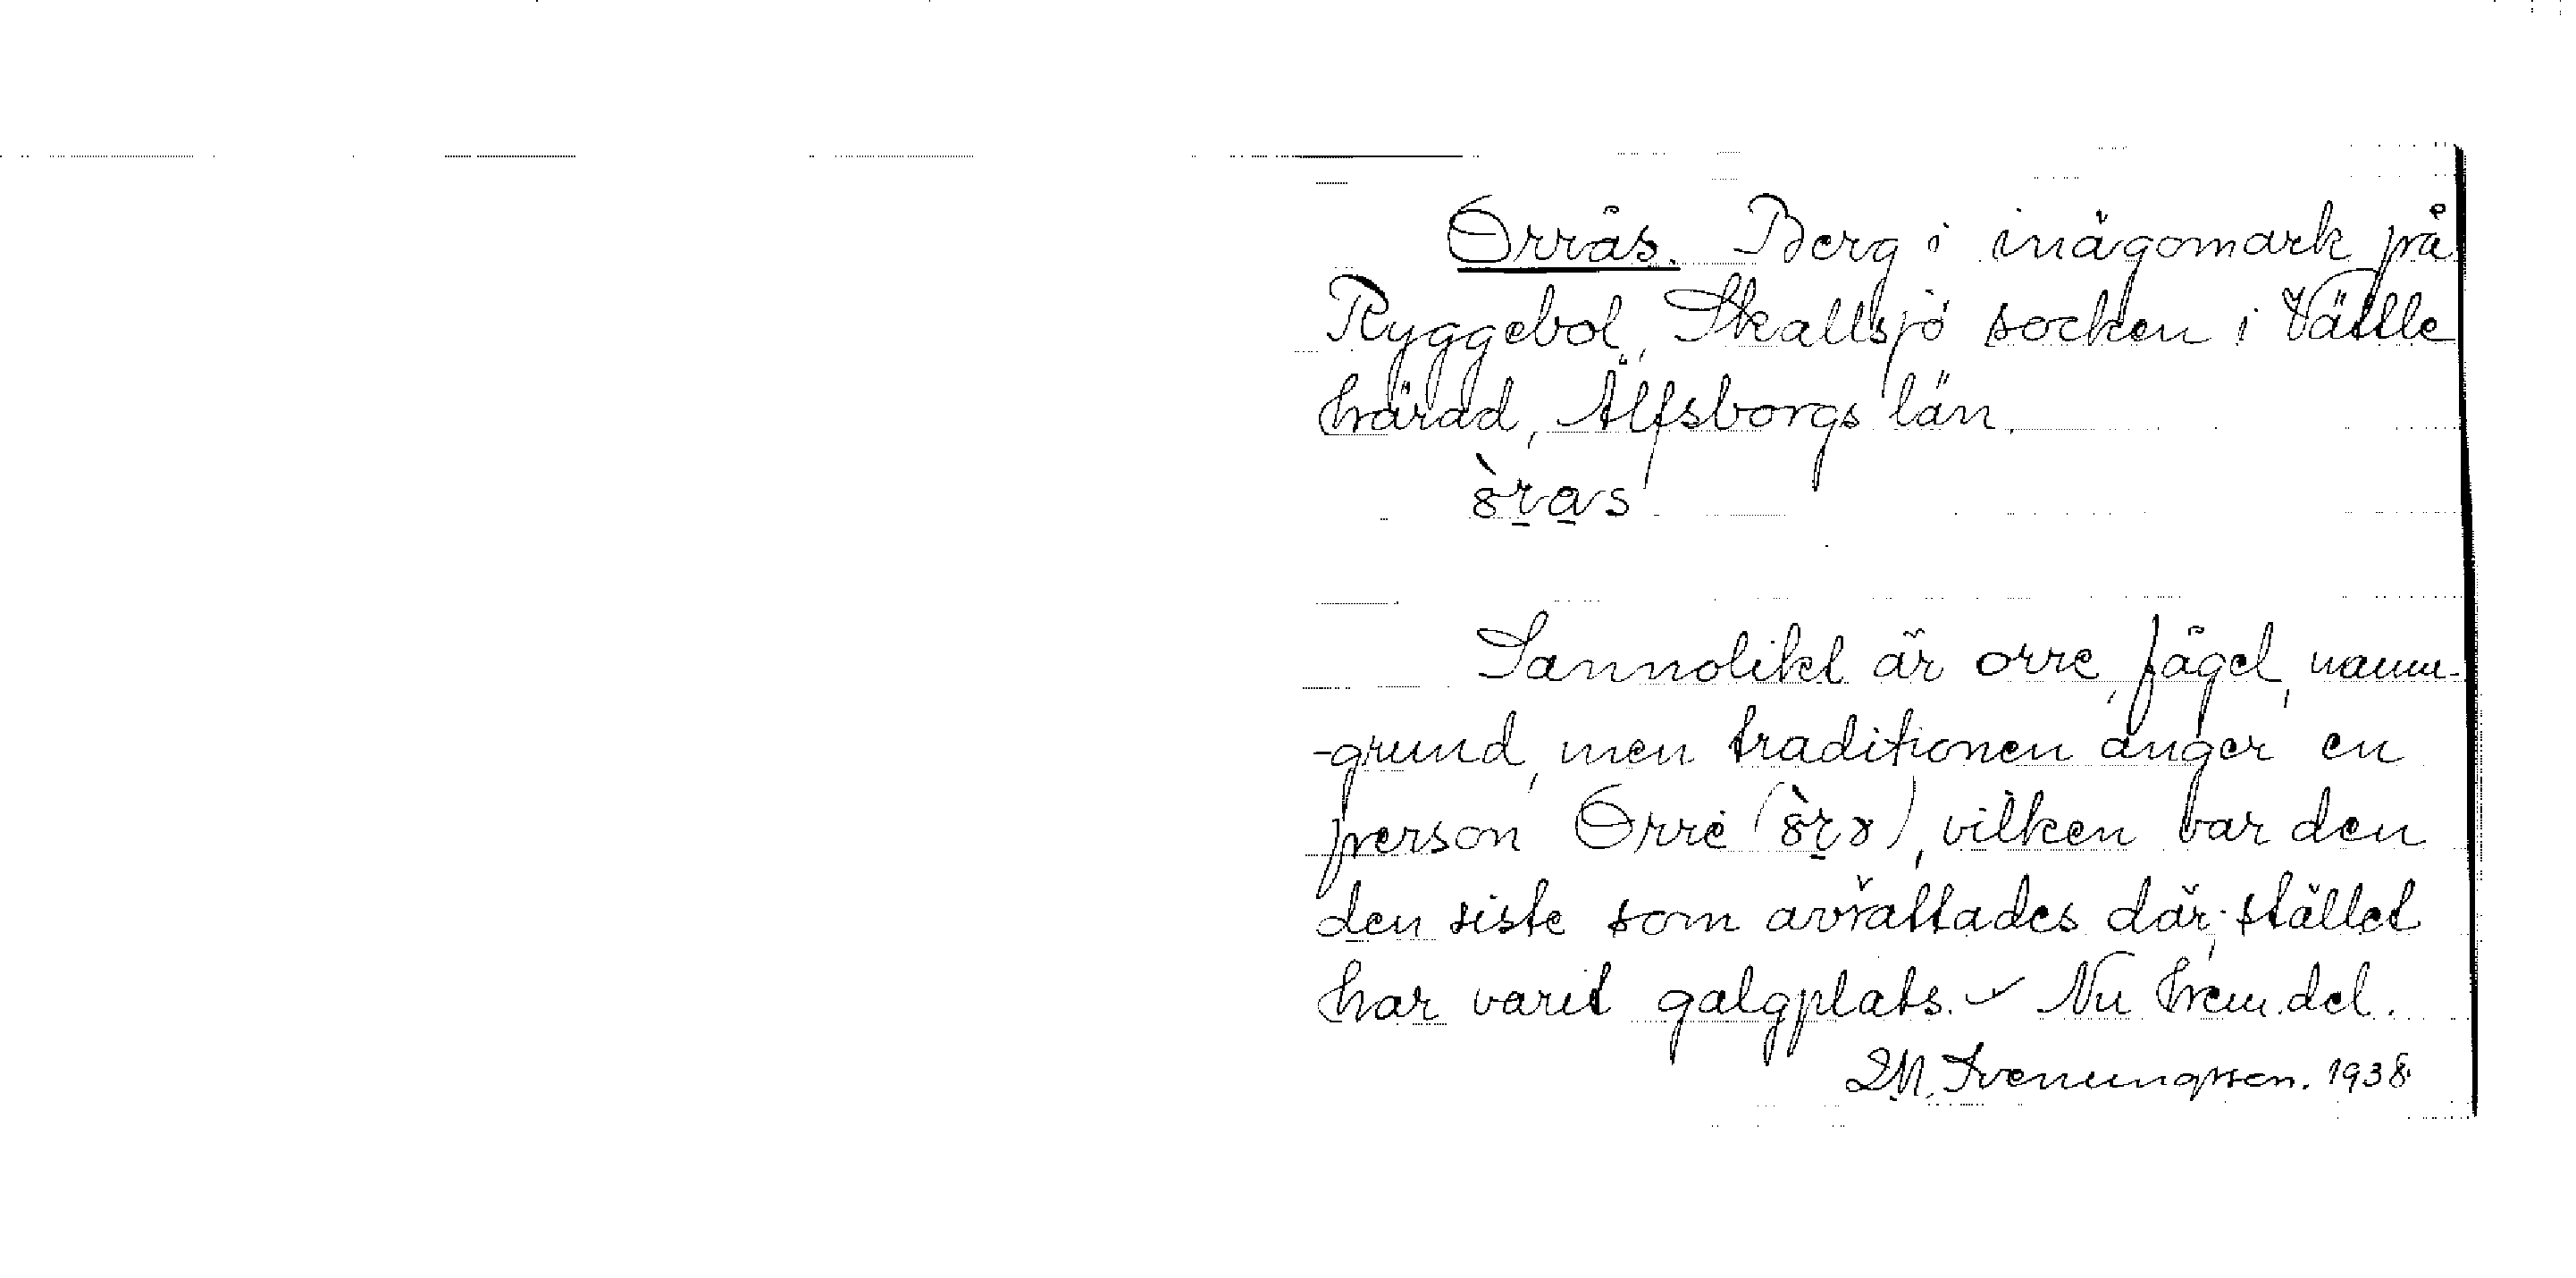 Orrås. Berg i inägomark på
Ryggebol, Skallsjö socken i Vättle
härad, Älfsborgs län.
Sannolikt är orre, fågel, namn-
-grund, men traditionen anger en
person Orre ( ), vilken var den
den siste som avrättades där; stället
har varit galgplats. Nu hem.del.
Svenungsson. 1938